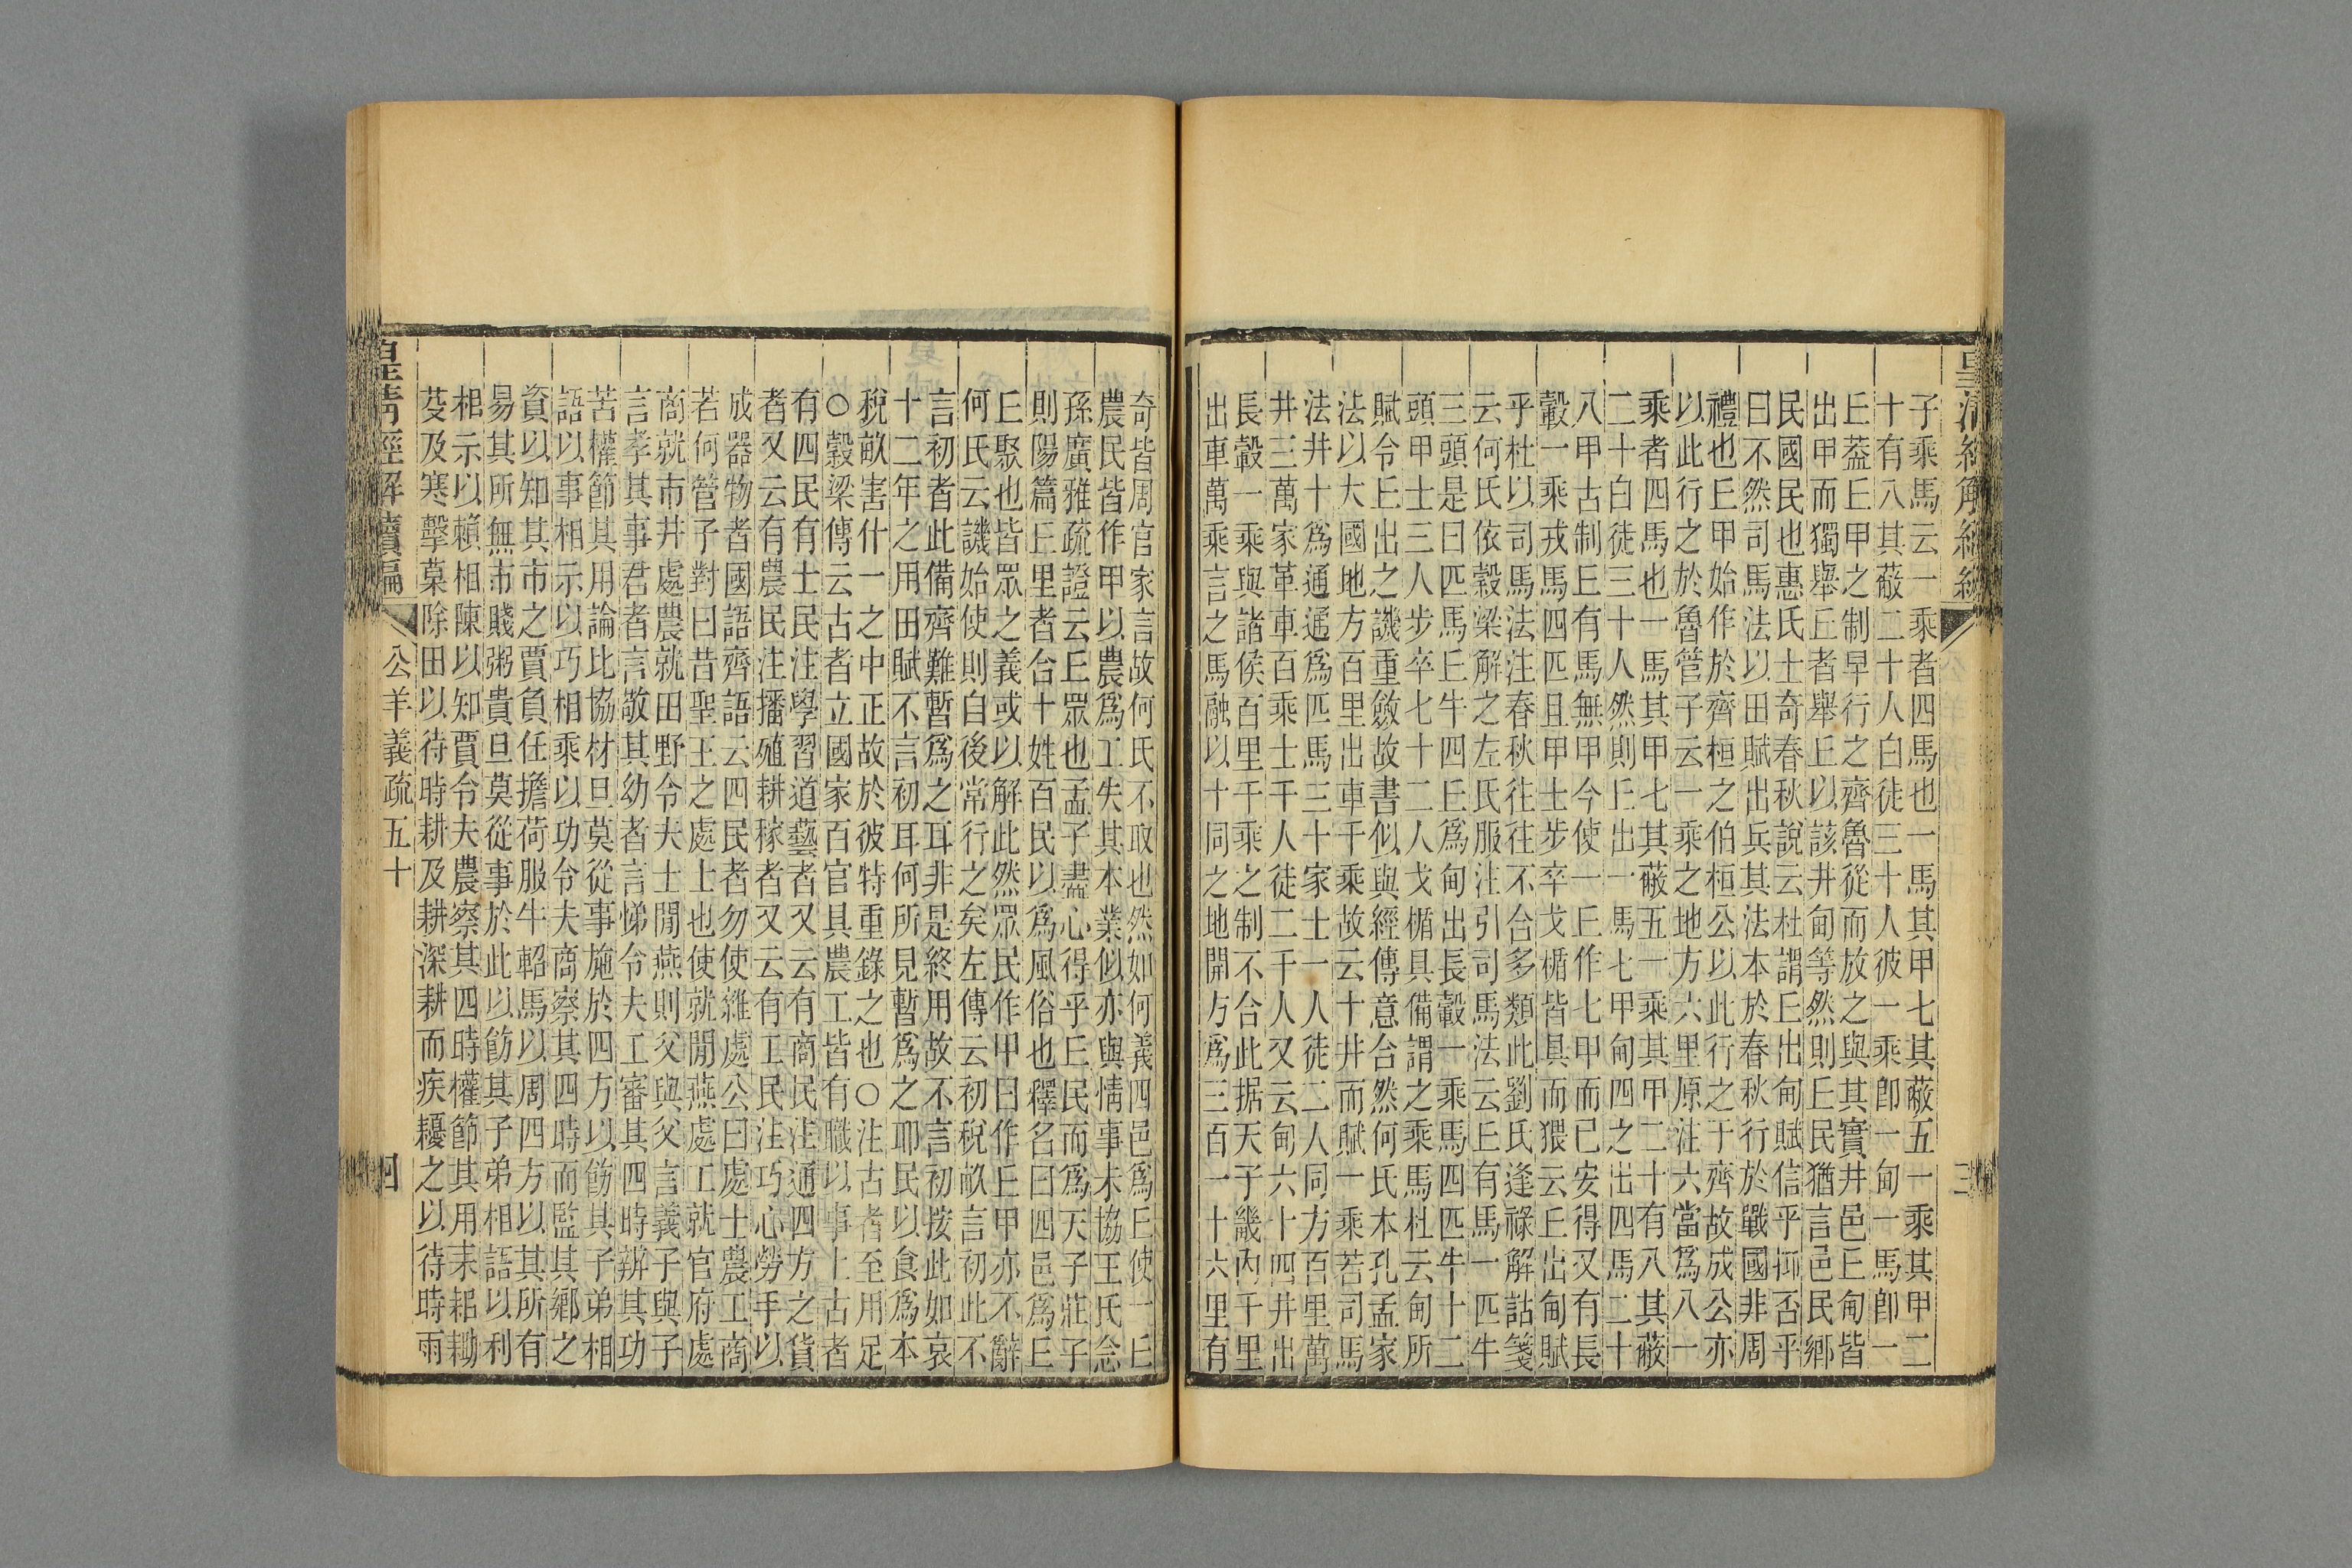 子乘馬云一乘者四馬也一馬其甲七其蔽五一乘其甲二
十有八其蔽二十人白徒三十人彼一乘卽一甸一馬卽一
𠀉葢𠀉甲之制早行之齊魯從而放之與其實井邑𠀉甸皆
出甲而獨舉𠀉者舉𠀉以該井甸等然則𠀉民猶言邑民鄉
民國民也惠氏士奇春秋說云杜謂𠀉出甸賦信乎抑否乎
曰不然司馬法以田賦出兵其法本於春秋行於戰國非周
禮也𠀉甲始作於齊桓之伯桓公以此行之于齊故成公亦
以此行之於魯管子云一乘之地方六里原注六當爲八一
乘者四馬也一馬其甲七其蔽五一乘其甲二十有八其蔽
二十白徒三十人然則𠀉出一馬七甲甸四之出四馬二十
八甲古制𠀉有馬無甲今使一𠀉作七甲而已安得又有長
轂一乘戎馬四匹且甲士步卒戈楯皆具而猥云𠀉出甸賦
乎杜以司馬法注春秋往往不合多類此劉氏逢祿解詁箋
云何氏依穀梁解之左氏服注引司馬法云𠀉有馬一匹牛
三頭是曰匹馬𠀉牛四𠀉爲甸出長轂一乘馬四匹牛十二
頭甲士三人步卒七十二人戈楯具備謂之乘馬杜云甸所
賦令𠀉出之譏重斂故書似與經傳意合然何氏本孔孟家
法以大國地方百里出車千乘故云十井而賦一乘若司馬
法井十爲通通爲匹馬三十家士一人徒二人同方百里萬
井三萬家革車百乘士千人徒二千人又云甸六十四井出
長轂一乘與諸侯百里千乘之制不合此据天子畿內千里
出車萬乘言之馬融以十同之地開方爲三百一十六里有
奇皆周官家言故何氏不取也然如何義四邑爲𠀉使一𠀉
農民皆作甲以農爲工失其本業似亦與情事未協王氏念
孫廣雅疏證云𠀉眾也孟子盡心得乎𠀉民而爲天子莊子
則陽篇𠀉里者合十姓百民以爲風俗也釋名曰四邑爲𠀉
𠀉聚也皆眾之義或以解此然眾民作甲曰作𠀉甲亦不辭
何氏云譏始使則自後常行之矣左傳云初稅畝言初此不
言初者此備齊難暫爲之耳非是終用故不言初按此如哀
十二年之用田賦不言初耳何所見暫爲之耶民以食爲本
稅畝害什一之中正故於彼特重錄之也○注古者至用足
○穀梁傳云古者立國家百官具農工皆有職以事上古者
有四民有士民注學習道藝者又云有商民注通四方之貨
者又云有農民注播殖耕稼者又云有工民注巧心勞手以
成器物者國語齊語云四民者勿使雜處公曰處士農工商
若何管子對曰昔聖王之處士也使就閒燕處工就官府處
商就市井處農就田野令夫士閒燕則父與父言義子與子
言孝其事君者言敬其幼者言悌令夫工審其四時辨其功
苦權節其用論比協材旦莫從事施於四方以飭其子弟相
語以事相示以巧相乘以功令夫商察其四時而監其鄉之
資以知其市之賈負任擔荷服牛軺馬以周四方以其所有
易其所無市賤粥貴旦莫從事於此以飭其子弟相語以利
相示以賴相陳以知賈令夫農察其四時權節其用耒耜耡
芟及寒擊菒除田以待時耕及耕深耕而疾耰之以待時雨
皇清經解續編
公羊義疏五十
四